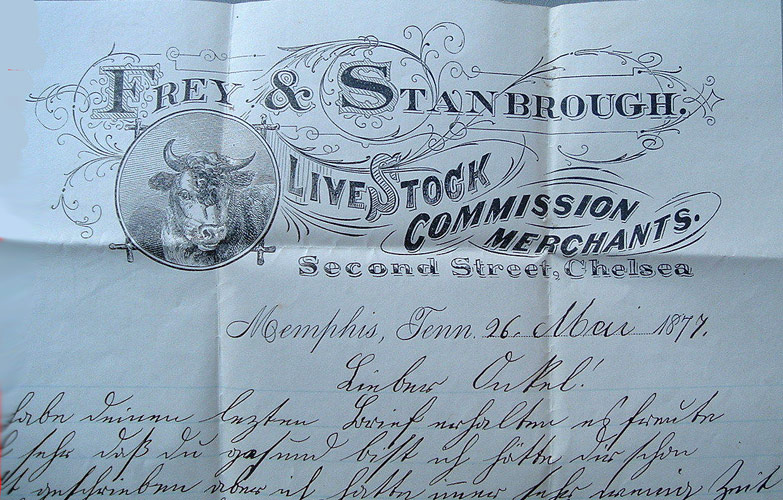 FREY & STANBROUGH.
LIVE STOCK
COMMISSION
MERCHANTS.
Second Street, Chelsea
Memphis, Tenn. 26. Mai 1877.
Lieber Onkel!
habe deinen lezten Brief erhalten es freute
sehr daß du gesund bist ich hätte dir schon
geschrieben aber ich hatte imer sehr wenig Zeit